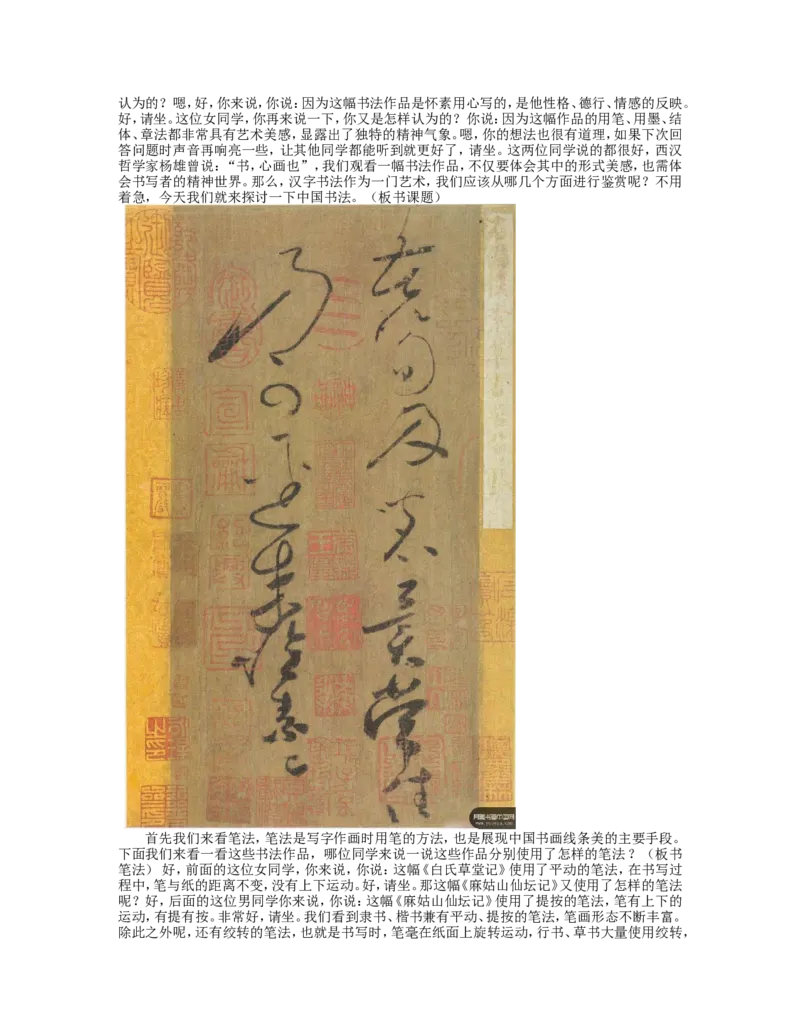 认为的？嗯,好,你来说,你说:因为这幅书法作品是怀素用心写的,是他性格、德行、情感的反映。
好,请坐。这位女同学,你再来说一下,你又是怎样认为的？你说:因为这幅作品的用笔、用墨、结
体、章法都非常具有艺术美感,显露出了独特的精神气象。嗯,你的想法也很有道理,如果下次回
答问题时声音再响亮一些，让其他同学都能听到就更好了，请坐。这两位同学说的都很好,西汉
哲学家杨雄曾说：“书,心画也”,我们观看一幅书法作品,不仅要体会其中的形式美感,也需体
会书写者的精神世界。那么,汉字书法作为一门艺术,我们应该从哪几个方面进行鉴赏呢？不用
着急，今天我们就来探讨一下中国书法。（板书课题）
苦笋及茗异常佳
乃可径来怀素上
首先我们来看笔法,笔法是写字作画时用笔的方法,也是展现中国书画线条美的主要手段。
下面我们来看一看这些书法作品，哪位同学来说一说这些作品分别使用了怎样的笔法？（板书
笔法）好,前面的这位女同学,你来说,你说:这幅《白氏草堂记》使用了平动的笔法,在书写过
程中,笔与纸的距离不变,没有上下运动。好,请坐。那这幅《麻姑山仙坛记》又使用了怎样的笔法
呢？好,后面的这位男同学你来说,你说:这幅《麻姑山仙坛记》使用了提按的笔法,笔有上下的
运动,有提有按。非常好,请坐。我们看到隶书、楷书兼有平动、提按的笔法,笔画形态不断丰富。
除此之外呢,还有绞转的笔法,也就是书写时,笔毫在纸面上旋转运动,行书、草书大量使用绞转,